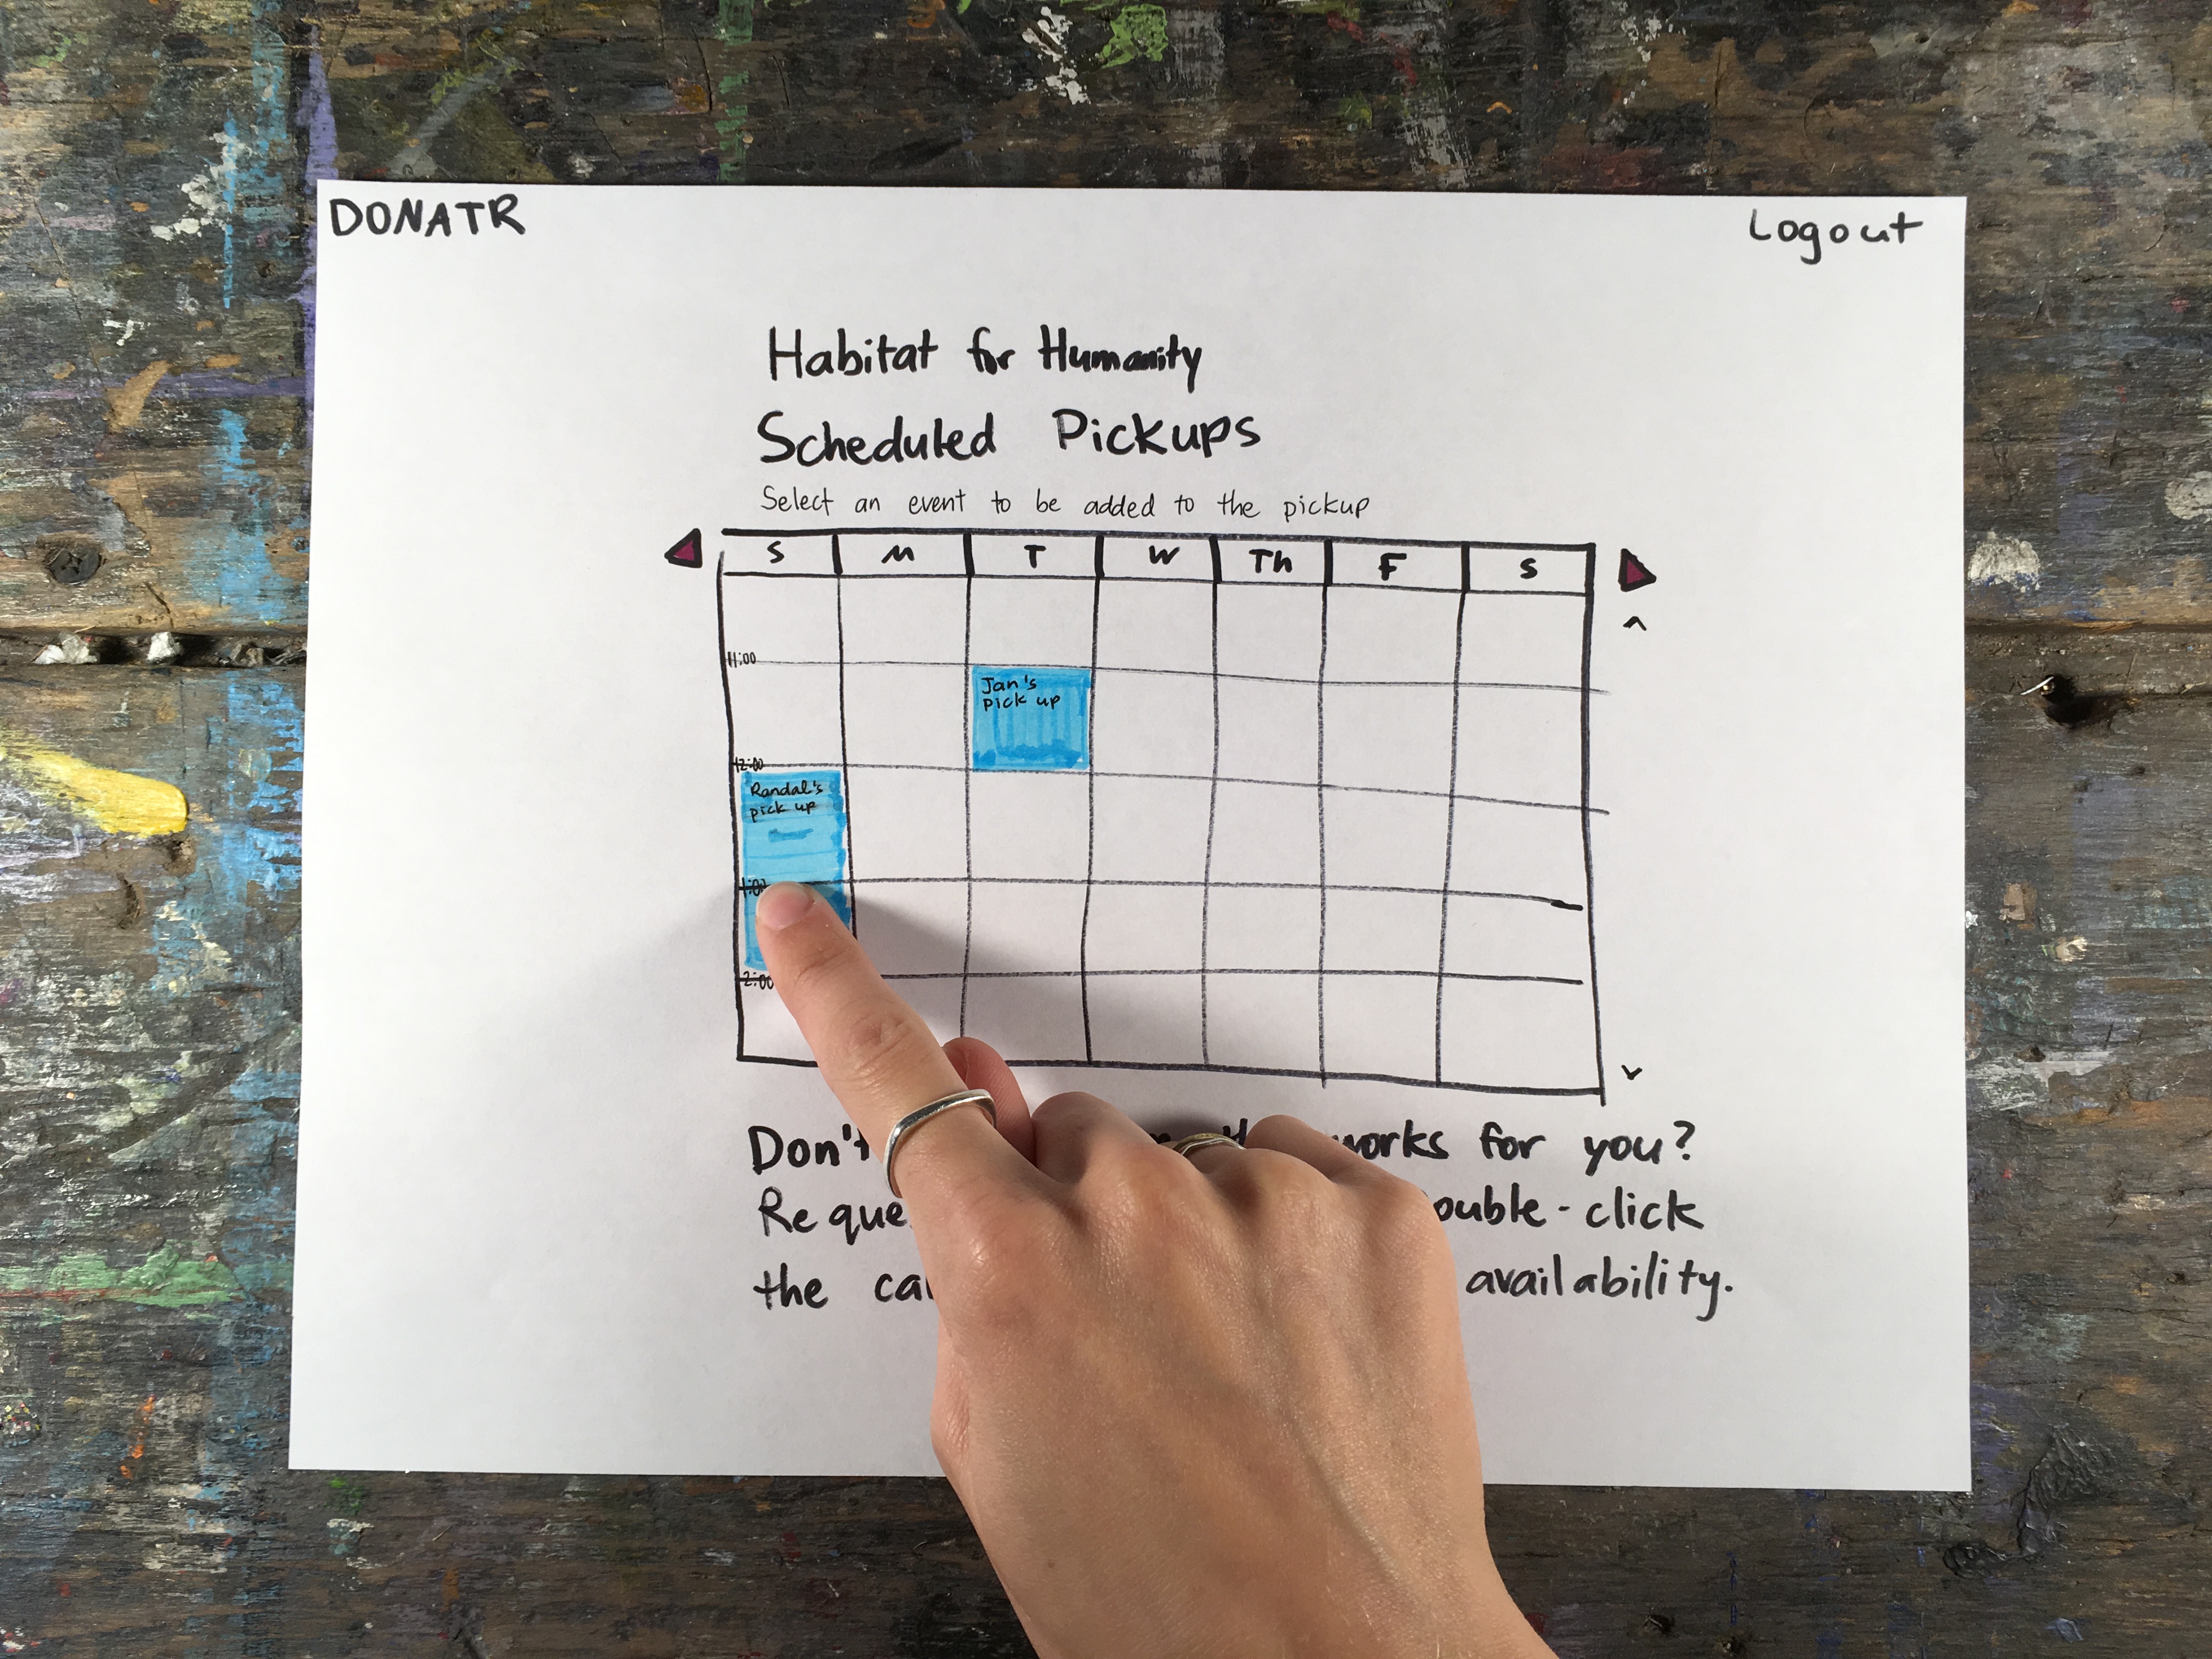 DONATR
Logout
Habitat for Humanity
Scheduled Pickups
Select an event to be added to the pickup
S M T W Th F S
^
11:00
Jan's
pick up
12:00
Randal's
pick up
1:00
2:00
Don't works for you?
double-click
the availability.